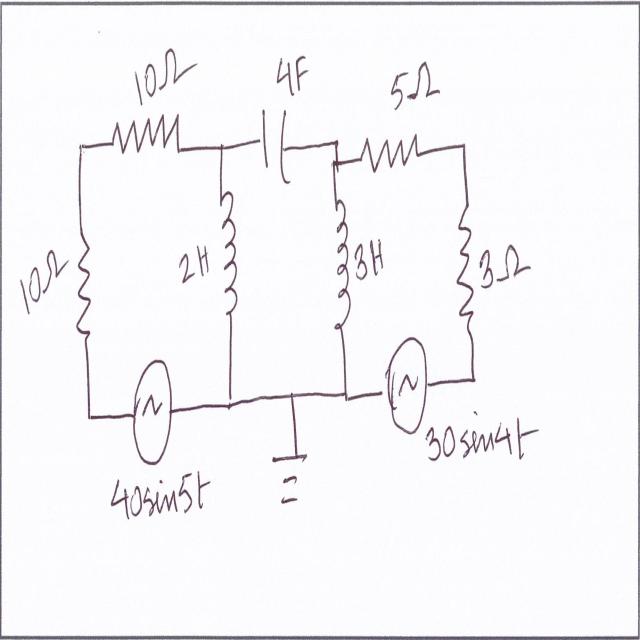 10Ω
4F
5Ω
10Ω
2H
3H
3Ω
40sin5t
30sin4t